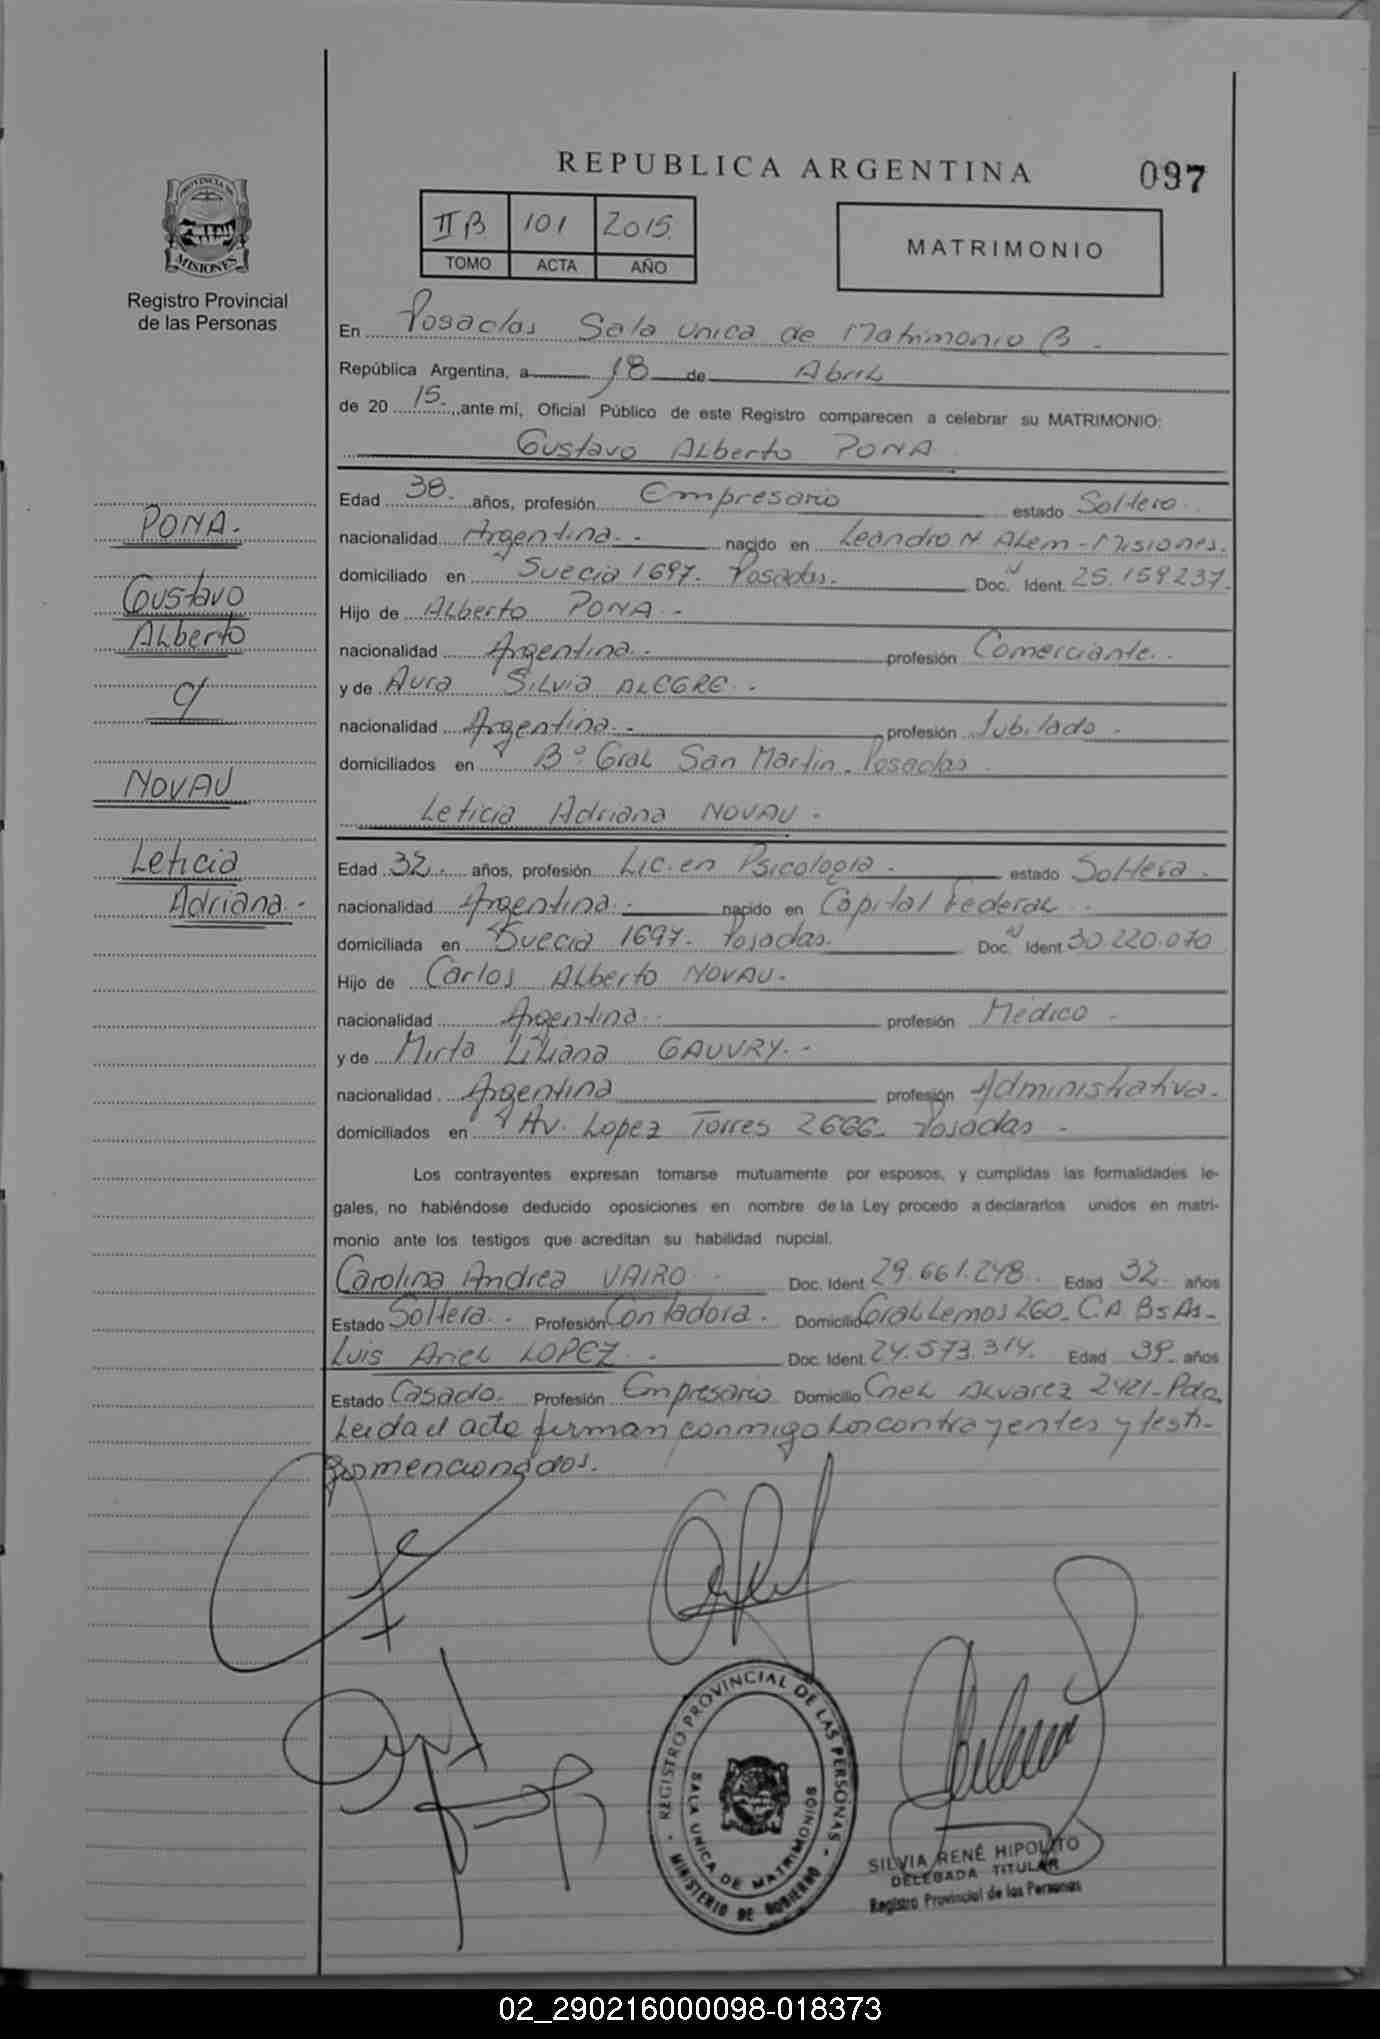 REPUBLICA ARGENTINA
097
II B. 101 2015.
TOMO ACTA AÑO
MATRIMONIO
PROVINCIA DE
MISIONES
Registro Provincial
de las Personas
En Posadas Sala unica de Matrimonio B -
República Argentina, a 18 de Abril
de 20 15. ante mí, Oficial Público de este Registro comparecen a celebrar su MATRIMONIO:
Gustavo Alberto PONA
Edad 38. años, profesión Empresario estado Soltero.
nacionalidad Argentina. - nacido en Leandro N. Alem - Misiones.
domiciliado en Suecia 1697. Posadas. Doc. Ident. 25.159237.
Hijo de Alberto PONA. -
nacionalidad Argentina. - profesión Comerciante. -
y de Aura Silvia ALEGRE. -
nacionalidad Argentina. - profesión Jubilado -
domiciliados en Bº Gral San Martin. Posadas
Leticia Adriana NOVAU -
Edad 32. años, profesión Lic. en Psicologia - estado Soltera -
nacionalidad Argentina. nacido en Capital Federal -
domiciliada en Suecia 1697. Posadas. Doc. Ident 30.220.070
Hijo de Carlos Alberto NOVAU.
nacionalidad Argentina - profesión Médico -
y de Mirta Liliana GAUVRY. -
nacionalidad Argentina profesión Administrativa.
domiciliados en Av. Lopez Torres 2666. Posadas -
Los contrayentes expresan tomarse mutuamente por esposos, y cumplidas las formalidades le-
gales, no habiéndose deducido oposiciones en nombre de la Ley procedo a declararlos unidos en matri-
monio ante los testigos que acreditan su habilidad nupcial.
Carolina Andrea VAIRO - Doc. Ident 29.661.248 Edad 32 años
Estado Soltera. - Profesión Contadora. Domicilio Gral Lemos 260_ C.A. Bs As-
Luis Ariel LOPEZ. - Doc. Ident. 24.573.314. Edad 39 años
Estado Casado. Profesión Empresario Domicilio Cnel Alvarez 2421-Pdas
Leida el acta firman conmigo los contrayentes y testi-
gos mencionados.
PONA.
Gustavo
Alberto
c/
NOVAU
Leticia
Adriana -
REGISTRO PROVINCIAL DE LAS PERSONAS
SALA UNICA DE MATRIMONIOS
MINISTERIO DE GOBIERNO
SILVIA RENÉ HIPOLITO
DELEGADA TITULAR
Registro Provincial de las Personas
02_290216000098-018373